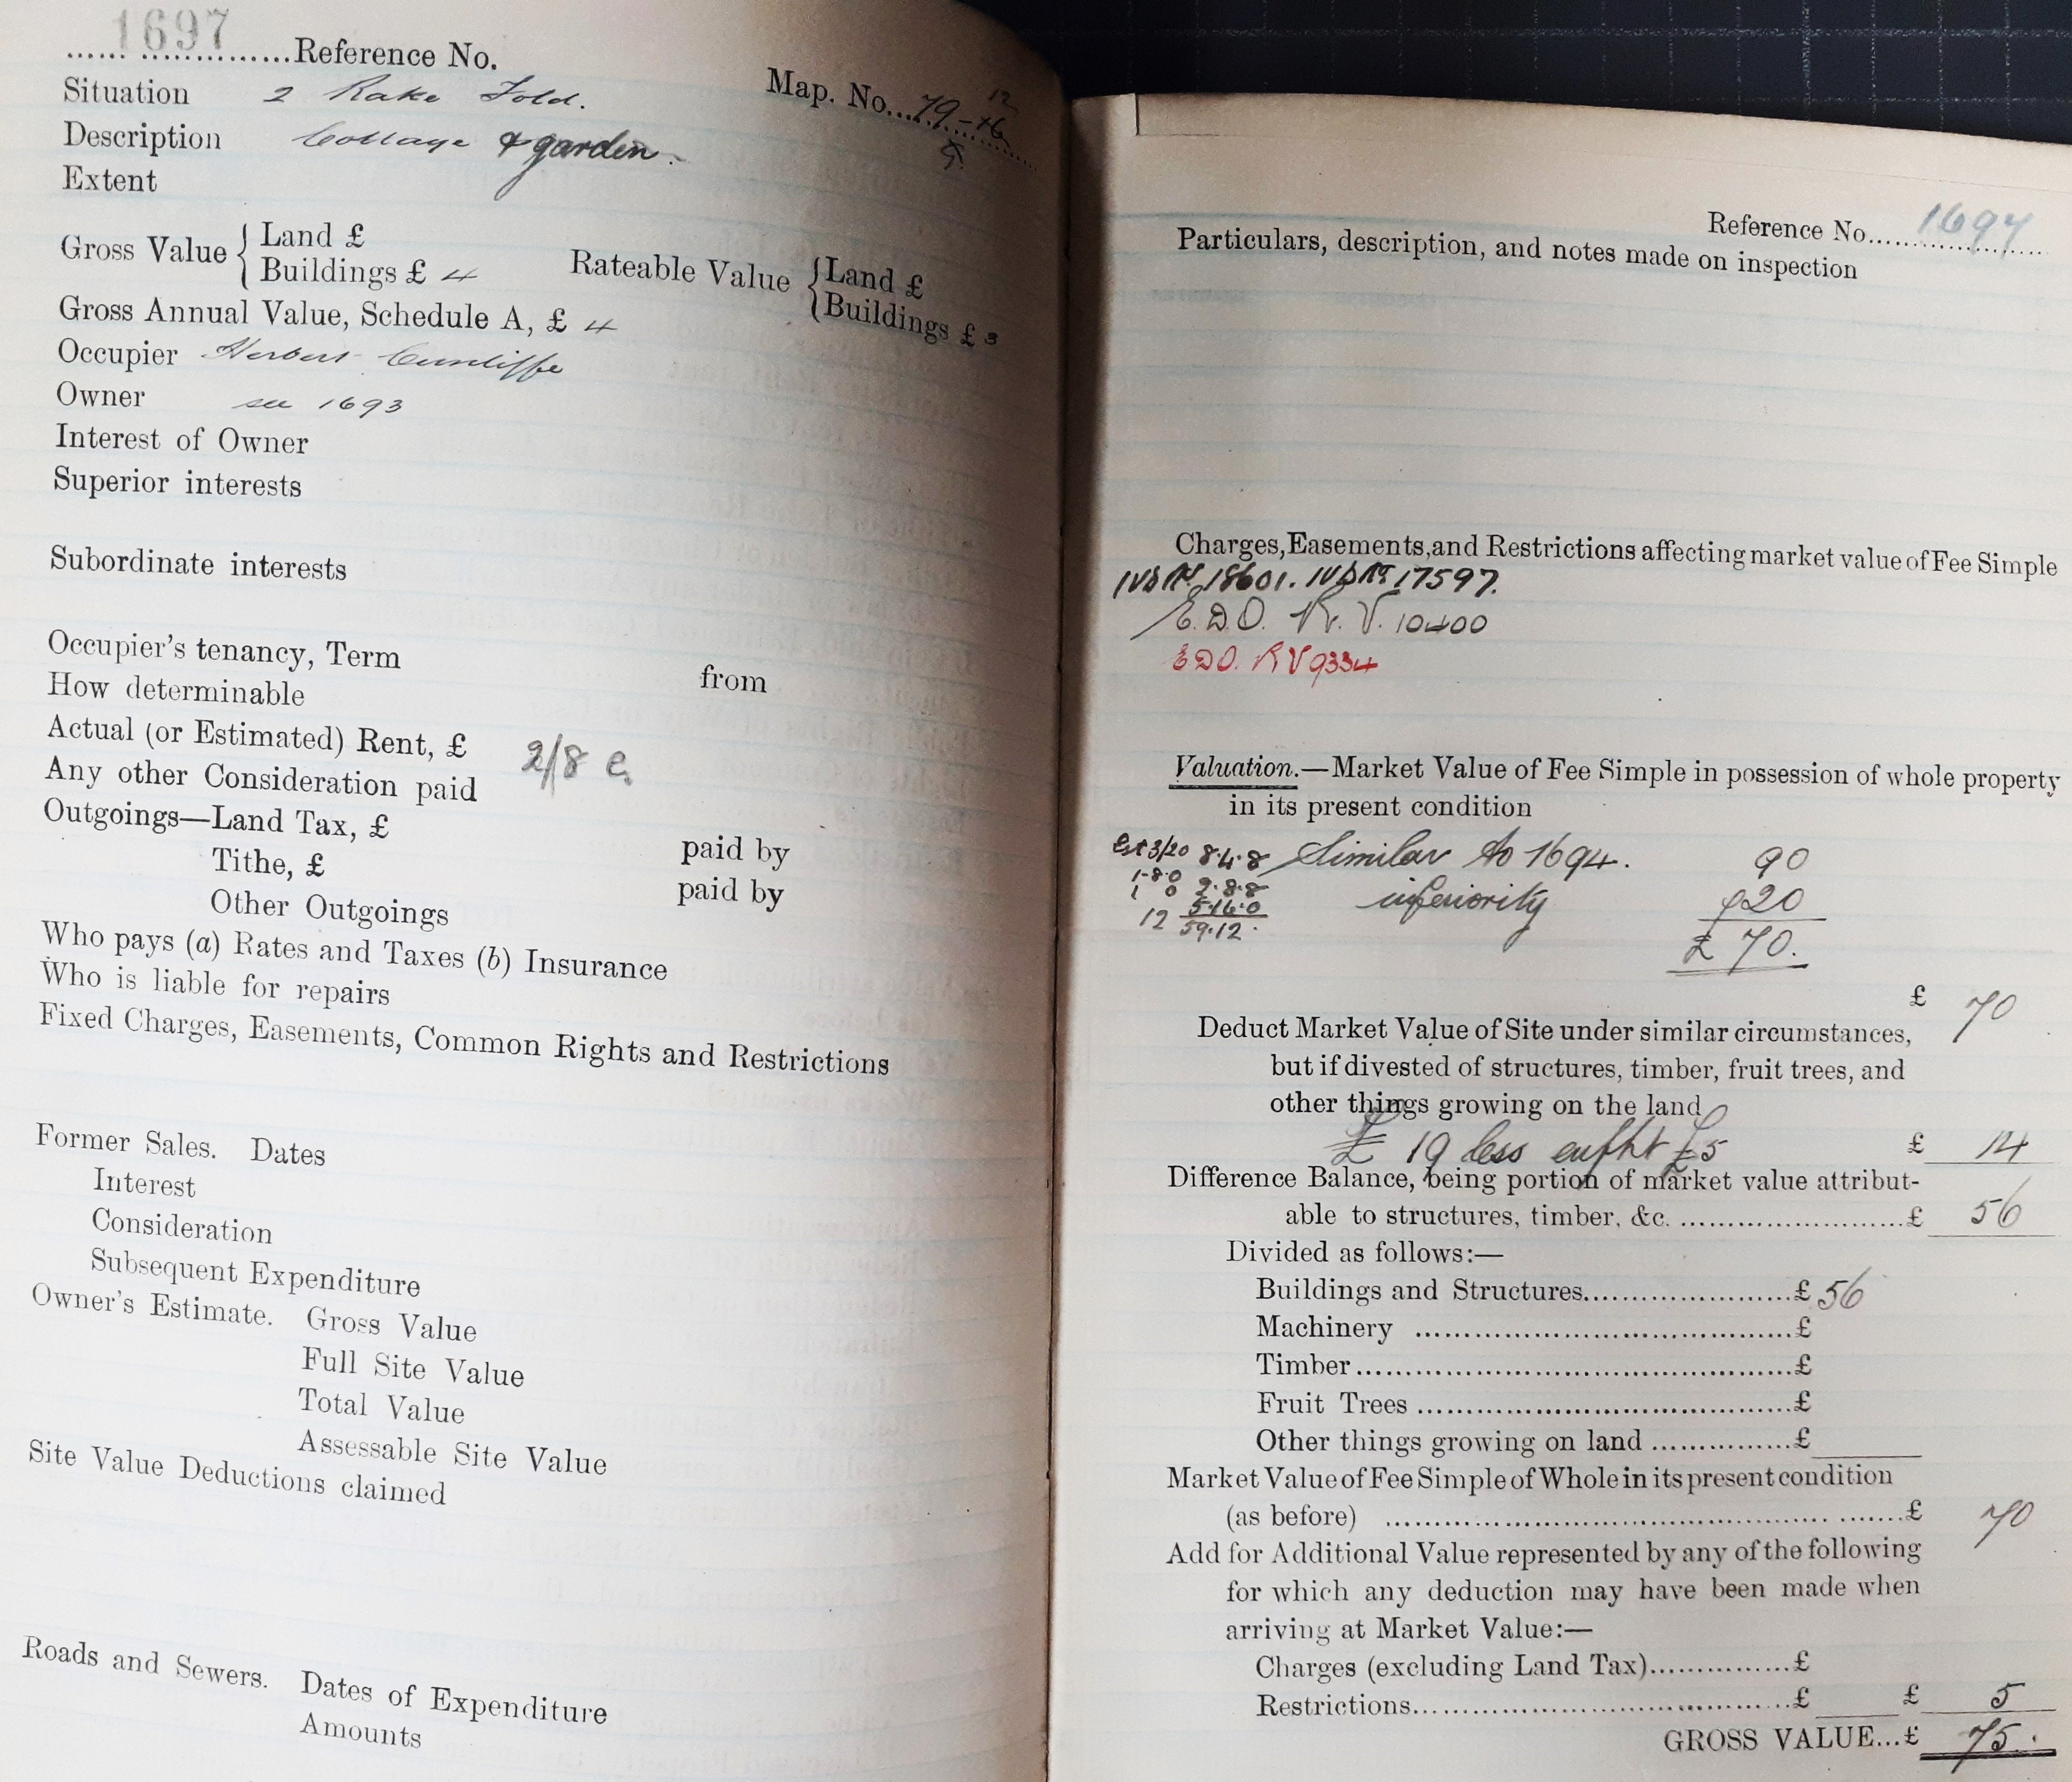 1697
Reference No.
Map. No. 79-16
12
Situation 2 Rake Fold.
Description Cottage & garden.
Extent
Gross Value { Land £
Buildings £ 4
Rateable Value { Land £
Buildings £ 3
Gross Annual Value, Schedule A, £ 4
Occupier Herbert Cunliffe
Owner see 1693
Interest of Owner
Superior interests
Subordinate interests
Occupier's tenancy, Term from
How determinable
Actual (or Estimated) Rent, £ 2/8 c.
Any other Consideration paid
Outgoings—Land Tax, £ paid by
Tithe, £ paid by
Other Outgoings
Who pays (a) Rates and Taxes (b) Insurance
Who is liable for repairs
Fixed Charges, Easements, Common Rights and Restrictions
Former Sales. Dates
Interest
Consideration
Subsequent Expenditure
Owner's Estimate. Gross Value
Full Site Value
Total Value
Assessable Site Value
Site Value Deductions claimed
Roads and Sewers. Dates of Expenditure
Amounts
Reference No. 1697
Particulars, description, and notes made on inspection
Charges, Easements, and Restrictions affecting market value of Fee Simple
IVD No 18601. IVD No 17597.
E.D.O. R.V. 10400
EDO. RV 9334
Valuation.—Market Value of Fee Simple in possession of whole property
in its present condition
Est 3/20 8.4.8 Similar to 1694. 90
1-8-0
1 0 2.8.8 inferiority 20
5.16.0
12 59.12. £ 70.
£ 70
Deduct Market Value of Site under similar circumstances,
but if divested of structures, timber, fruit trees, and
other things growing on the land
£ 19 less £5 £ 14
Difference Balance, being portion of market value attribut-
able to structures, timber, &c. £ 56
Divided as follows:—
Buildings and Structures £ 56
Machinery £
Timber £
Fruit Trees £
Other things growing on land £
Market Value of Fee Simple of Whole in its present condition
(as before) £ 70
Add for Additional Value represented by any of the following
for which any deduction may have been made when
arriving at Market Value:—
Charges (excluding Land Tax) £
Restrictions £ £ 5
GROSS VALUE...£ 75.